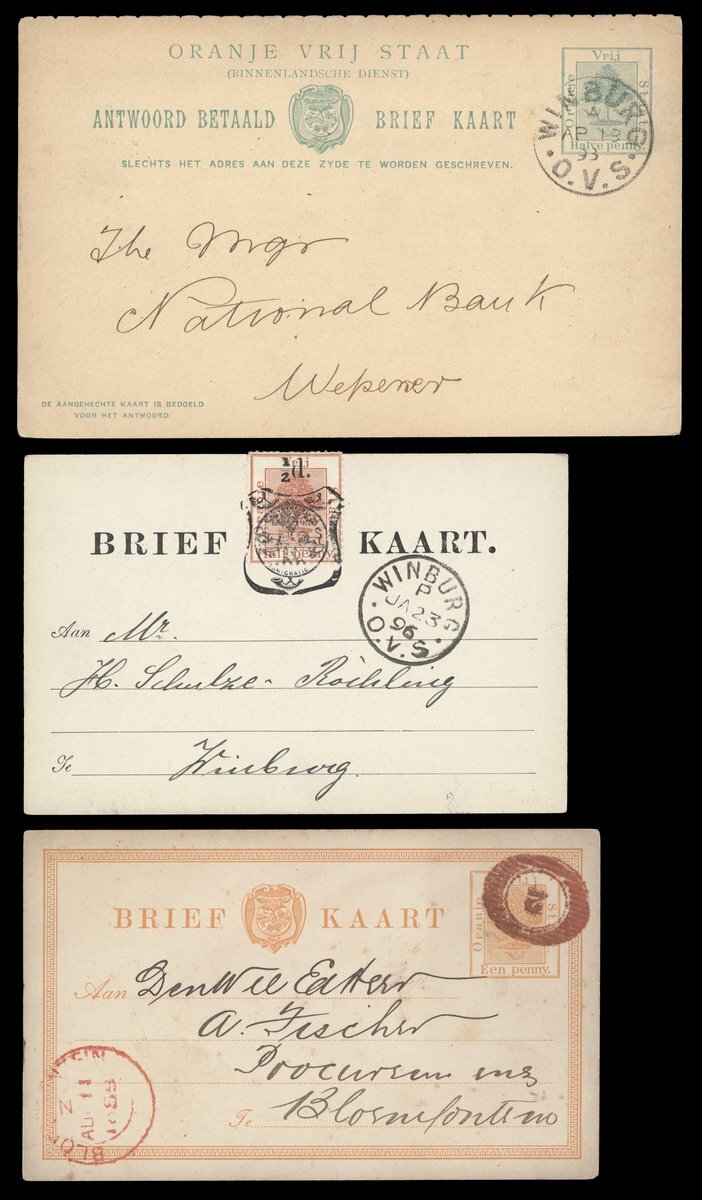 ORANJE VRIJ STAAT
(BINNENLANDSCHE DIENST)
ANTWOORD BETAALD BRIEF KAART
SLECHTS HET ADRES AAN DEZE ZYDE TE WORDEN GESCHREVEN.
Oranje Vrij Staat
Halve penny.
WINBURG
A
AP 13
93
O.V.S.
The Mgr
National Bank
Wepener
DE AANGEHECHTE KAART IS BEDOELD
VOOR HET ANTWOORD.
½d.
BRIEF KAART.
WINBURG
P
JA 23
96
O.V.S.
Aan Mr.
H. Schultze-Röchling
Te Winburg.
BRIEF KAART
Oranje Vrij
Een penny.
Aan Den Wel Ed Heer
A. Fischer
Te Bloemfontein
BLO
AU 11
1888